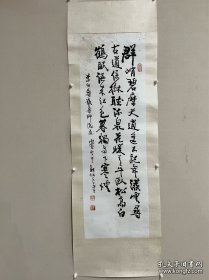 群峭碧摩天逍遥不記年撥雲尋
古道倚樹聽流泉花暖青牛臥松高白
鶴眠語來江色暮獨自下寒煙
李白尋雍尊師隱居